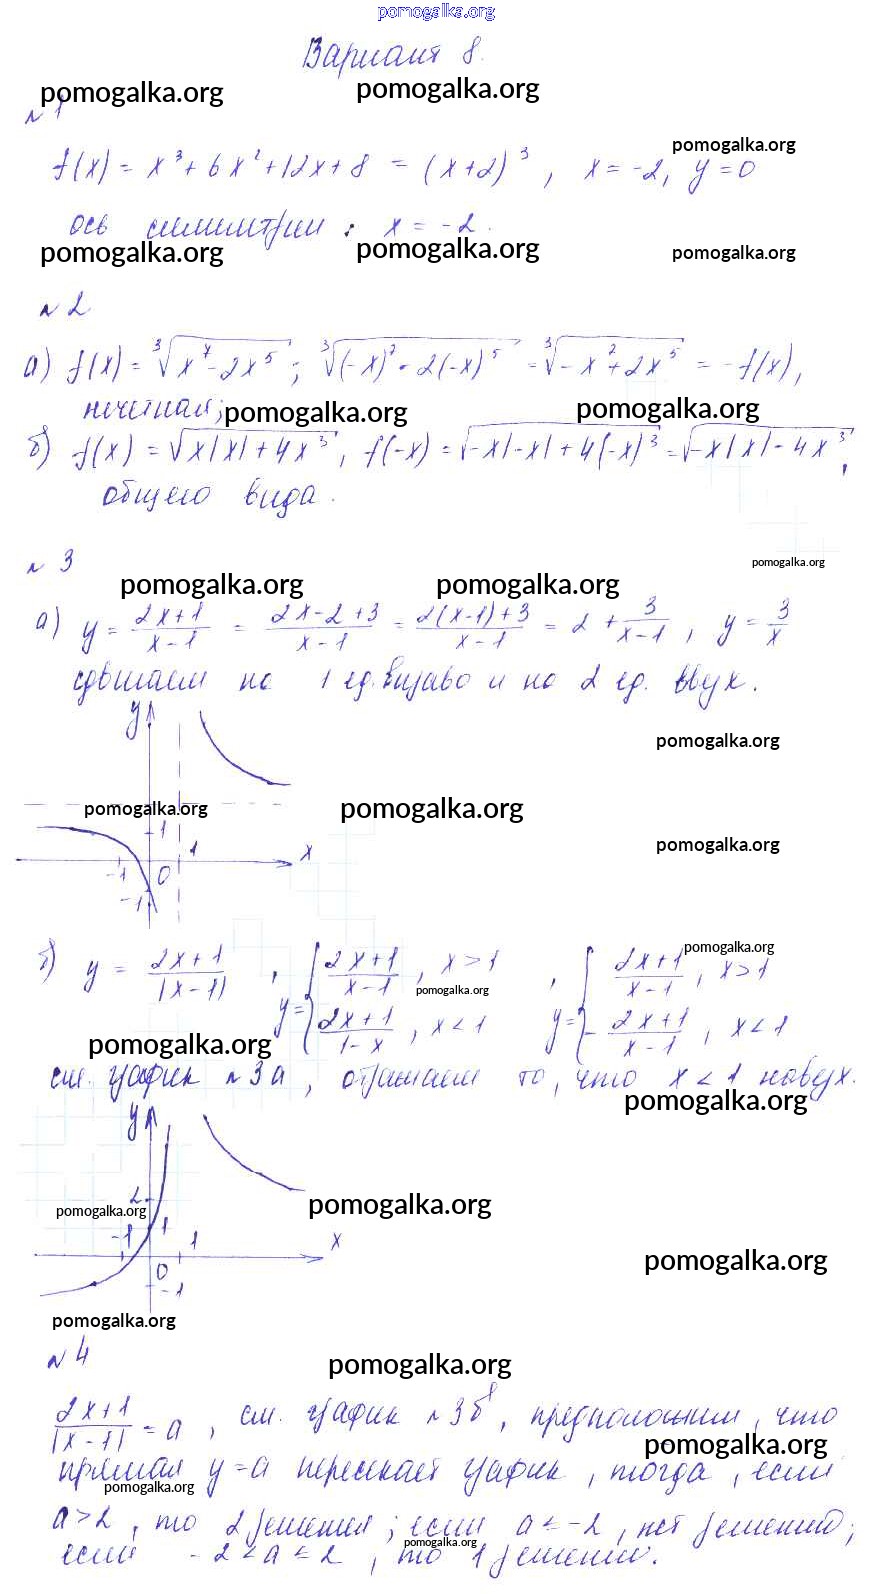 pomogalka.org
Вариант 8.
pomogalka.org pomogalka.org
№ 1
pomogalka.org
f(x) = x³ + 6x² + 12x + 8 = (x+2)³, x = -2, y = 0
ось симметрии: x = -2.
pomogalka.org pomogalka.org pomogalka.org
№ 2
а) f(x) = ∛(x⁷ - 2x⁵); ∛((-x)⁷ - 2(-x)⁵) = ∛(-x⁷ + 2x⁵) = -f(x),
нечетная; pomogalka.org pomogalka.org
б) f(x) = √(x|x| + 4x³), f(-x) = √(-x|-x| + 4(-x)³) = √(-x|x| - 4x³),
общего вида.
№ 3
pomogalka.org
pomogalka.org pomogalka.org
а) y = (2x+1)/(x-1) = (2x-2+3)/(x-1) = (2(x-1)+3)/(x-1) = 2 + 3/(x-1), y = 3/x
сдвигаем на 1 ед. вправо и на 2 ед. вверх.
y
pomogalka.org
pomogalka.org pomogalka.org
1
1 x
pomogalka.org
-1 0
-1
б) y = (2x+1)/|x-1|, y = { (2x+1)/(x-1), x > 1 , y = { (2x+1)/(x-1), x > 1
pomogalka.org
pomogalka.org
(2x+1)/(1-x), x < 1 - (2x+1)/(x-1), x < 1
pomogalka.org
см. график № 3а, отражаем то, что x < 1 наверх.
pomogalka.org
y
2
pomogalka.org pomogalka.org
-1 1 1 x
0
pomogalka.org
-1
pomogalka.org
№ 4
pomogalka.org
(2x+1)/|x-1| = a, см. график № 3б, предположим, что
pomogalka.org
прямая y = a пересекает график, тогда, если
pomogalka.org
a > 2, то 2 решения; если a ≤ -2, нет решений;
pomogalka.org
если -2 < a ≤ 2, то 1 решение.